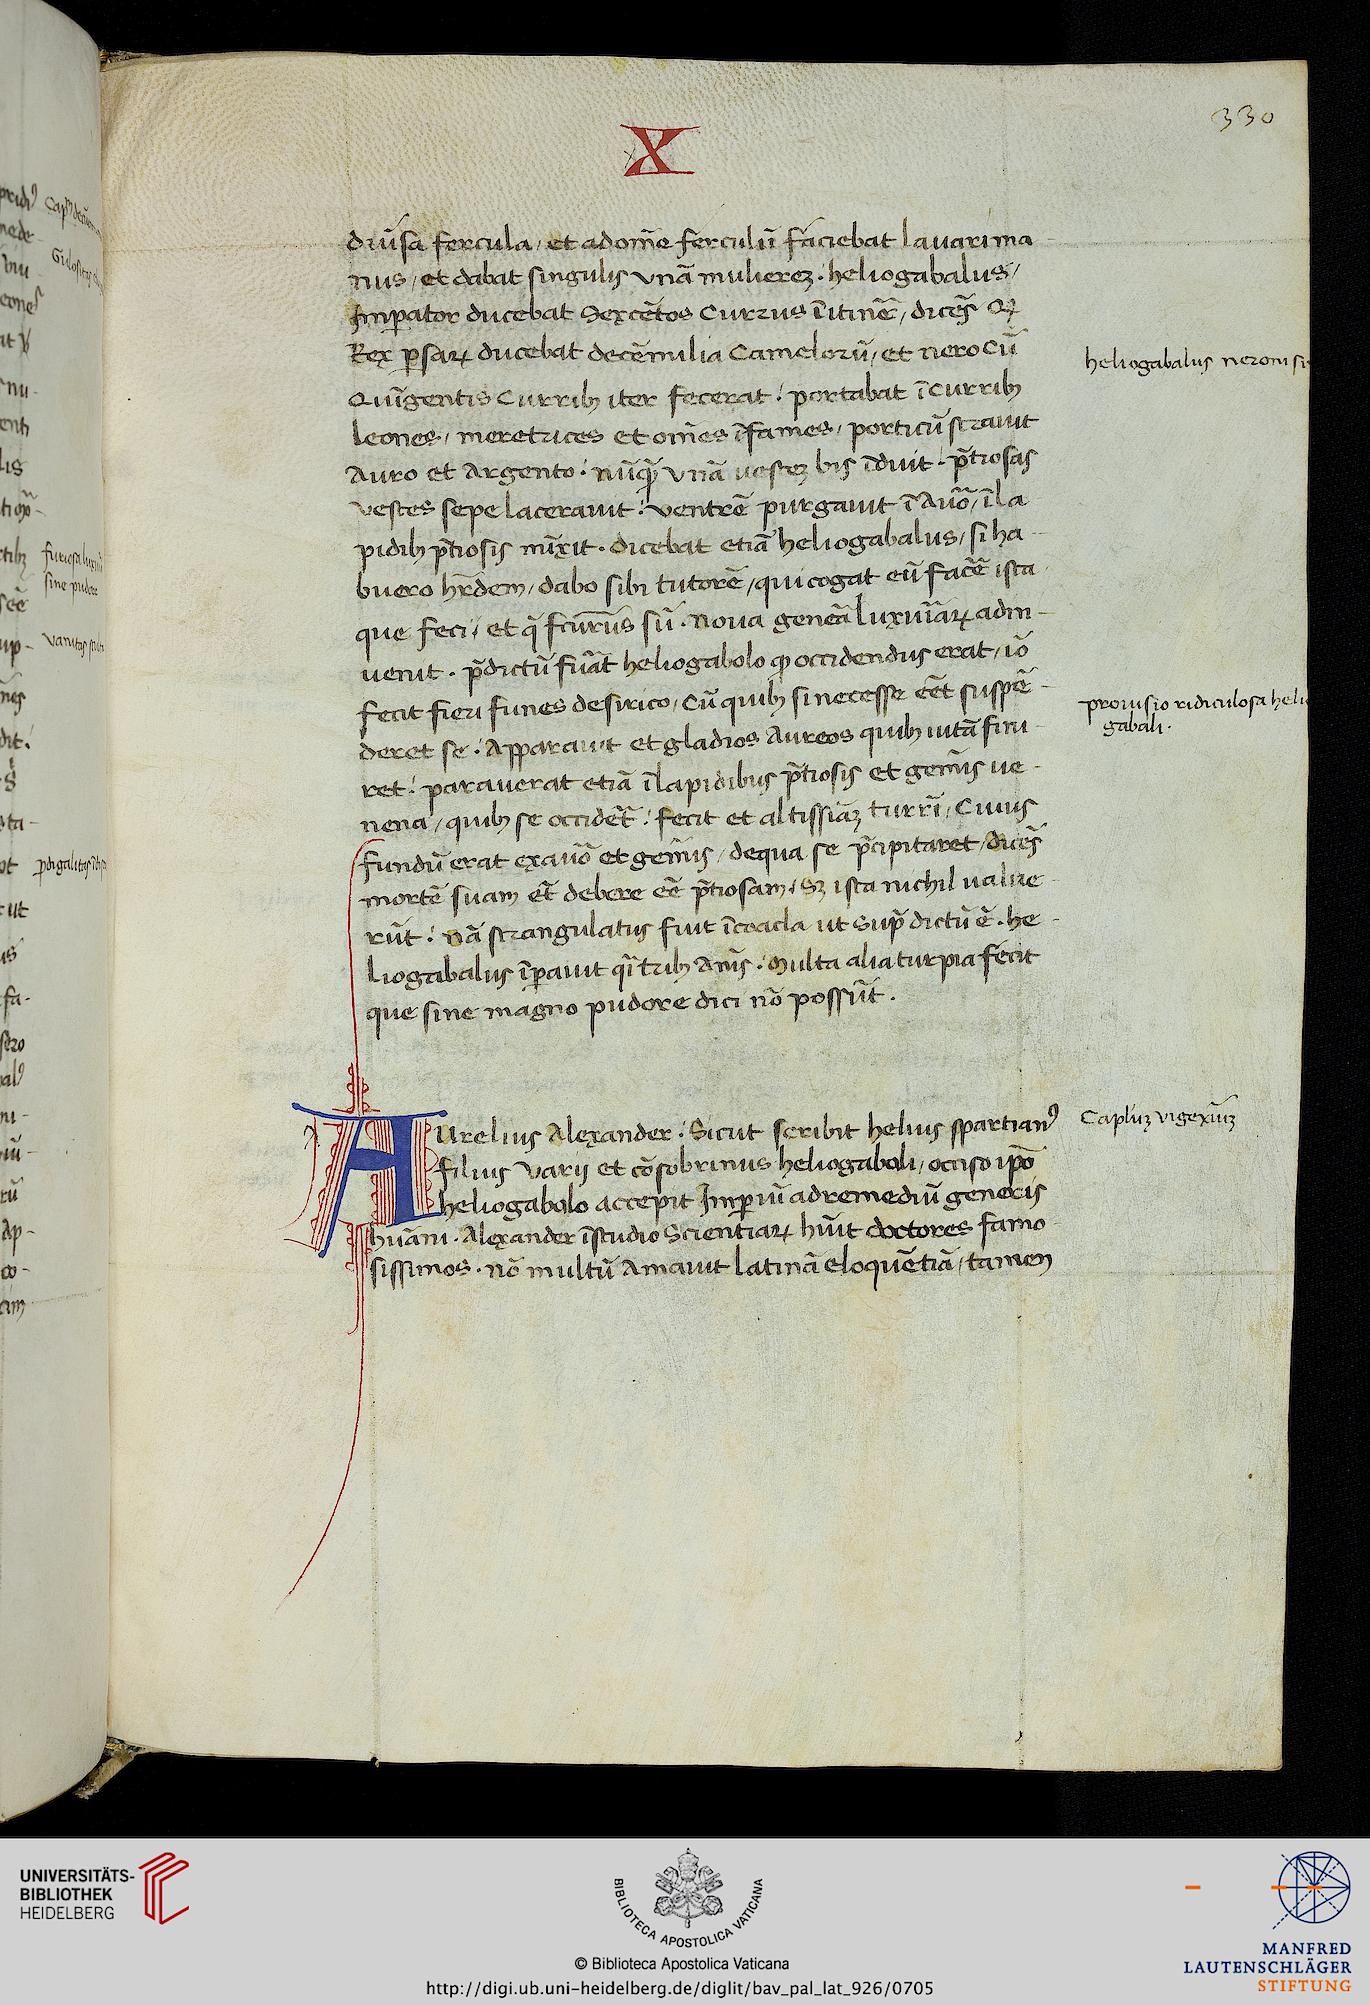 330
X
diũsa fercula, et ad om̃e ferculũ faciebat lavari ma
nus, et dabat singulis vnã mulierez. heliogabalus,
Imperator ducebat Sexcẽtos Currus ĩ itinẽ, dicẽs Qꝫ
Rex psaꝝ ducebat decẽ milia Camelorũ, et nero cũ
Quĩgentis Curribꝫ iter fecerat. portabat ĩ Curribꝫ
leones, meretrices et om̃es ĩfames, porticũ strauit
Auro et Argento. nũqꝫ vnã vestez bis ĩduit. p̃tiosas
vestes sepe lacerauit. ventrẽ purgauit ĩ Auõ, ĩ la-
pidibꝫ p̃tiosis mĩxit. dicebat etiã heliogabalus, si ha-
buero hr̃dem, dabo sibi tutorẽ, qui cogat eũ facẽ ista
que feci, et q̃ fcur̃us sũ. Noua genẽa luxuriaꝝ adin-
uenit. p̃dictũ fuãt heliogabolo qꝫ occidendus erat, iõ
fecit fieri funes de sirico, cũ quibꝫ si necesse eẽt suspẽ-
deret se. Apparauit et gladios Aureos quibꝫ uitã fini-
ret. parauerat etiã ĩ lapidibus p̃tiosis et gem̃is ue-
nena, quibꝫ se occidẽt. fecit et altissiãz turrĩ, Cuius
fundũ erat ex auõ et gem̃is, de qua se p̃cipitaret, dicẽs
mortẽ suam et̃ debere eẽ p̃tiosam, Sꝫ ista nichil ualue-
rũt. Nã strangulatus fuit ĩ cloacla ut sup̃ dictũ ẽ. he-
liogabalus ĩpauit qũi tribꝫ Anis. Multa alia turpia fecit
que sine magno pudore dici nõ possũt.
heliogabalus neroni si
prouisio ridiculosa helio
gabali.
AUrelius Alexander. Sicut scribit helius spartianꝰ
filius varij et cõsobrinus heliogaboli, occiso ip̃o
heliogabolo accepit Imperiũ ad remediũ generis
huãni. Alexander ĩ studio Scientiaꝝ hũit doctores famo-
sissimos. nõ multũ Amauit latinã eloquẽtiã, tamen
Caplũz vigexiũz
UNIVERSITÄTS-
BIBLIOTHEK
HEIDELBERG
BIBLIOTECA APOSTOLICA VATICANA
© Biblioteca Apostolica Vaticana
http://digi.ub.uni-heidelberg.de/diglit/bav_pal_lat_926/0705
MANFRED
LAUTENSCHLÄGER
STIFTUNG